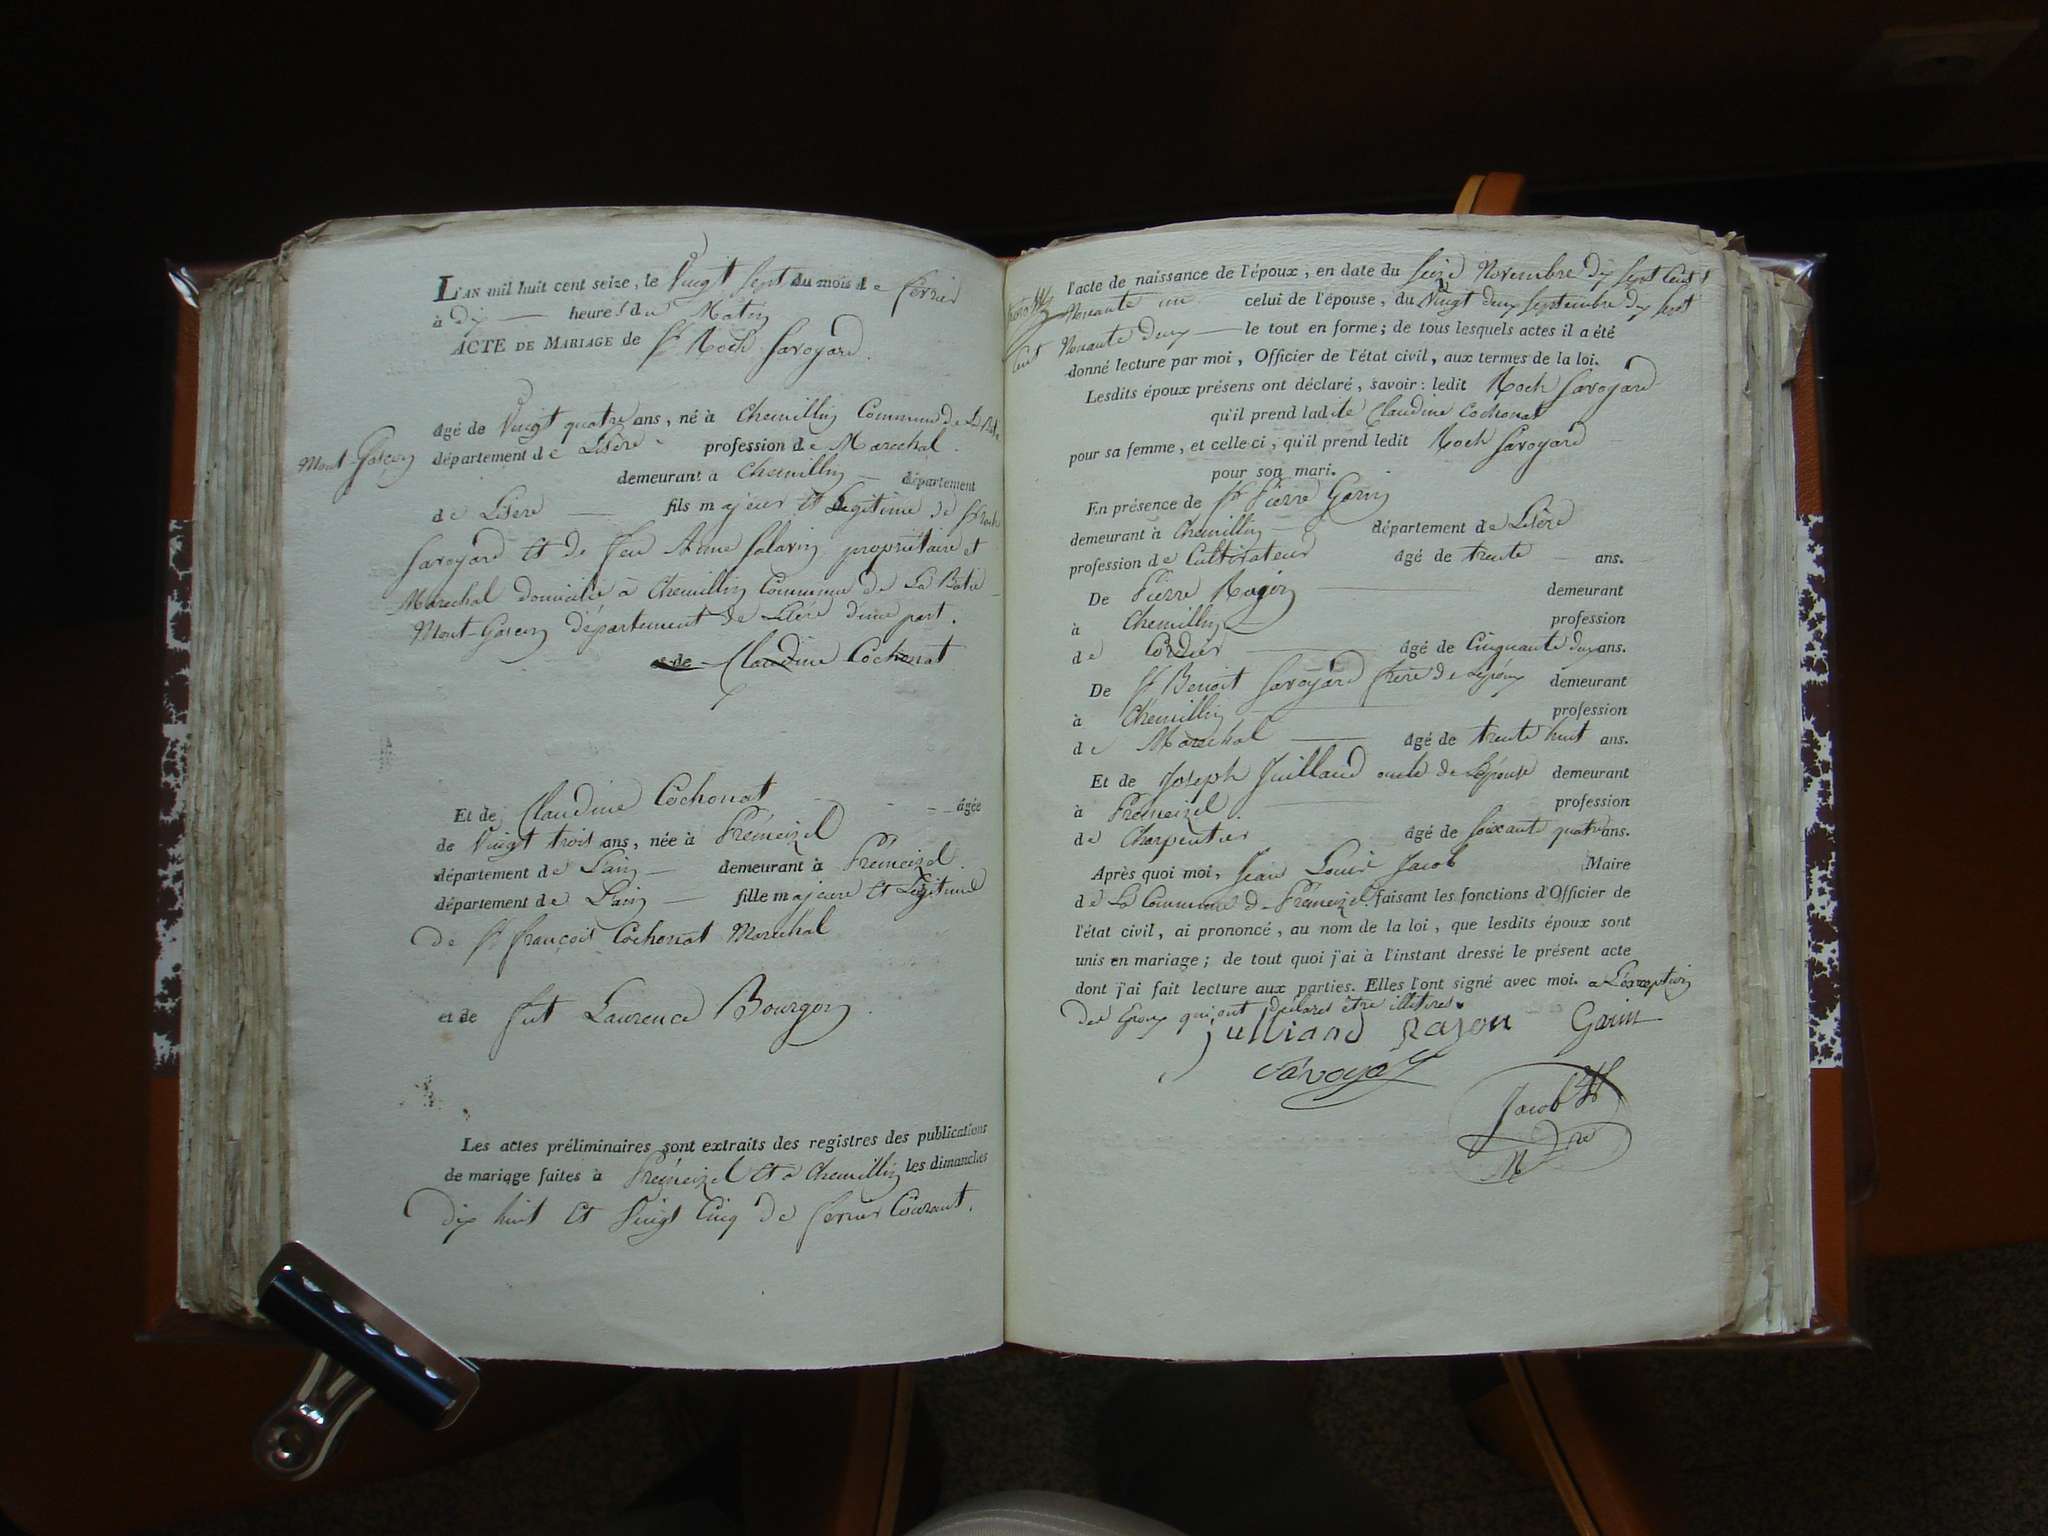 L'AN mil huit cent seize, le Vingt Sept du mois de fevrier
à dix — heures du Matin
ACTE DE MARIAGE de Sr Roch Savoyard
âgé de Vingt quatre ans, né à Chemillin Commune de La Batie
Mont-Gascon département de Lisère profession de Marechal
demeurant à Chemillin — département
de Lisère — fils majeur et Legitime de Sr Roch
Savoyard et de feu Anne Salavin propriétaire et
Marechal domicilié à Chemillin Commune de La Batie
Mont-Gascon département de Lisère d'une part.
et de Claudine Cochonat
Et de Claudine Cochonat âgée
de Vingt trois ans, née à Prémeizel
département de L'ain — demeurant à Prémeizel
département de L'ain — fille majeure et Legitime
de Sr françois Cochonat Marechal
et de fut Laurence Bourgon
Les actes préliminaires sont extraits des registres des publications
de mariage faites à Prémeizel et à Chemillin les dimanches
dix huit et Vingt Cinq de fevrier Courant.
l'acte de naissance de l'époux, en date du Seize Novembre dix Sept Cent
Nonante un celui de l'épouse, du Vingt deux Septembre dix Sept
Cent Nonante deux — le tout en forme; de tous lesquels actes il a été
donné lecture par moi, Officier de l'état civil, aux termes de la loi.
Lesdits époux présens ont déclaré, savoir: ledit Roch Savoyard
qu'il prend ladite Claudine Cochonat
pour sa femme, et celle-ci, qu'il prend ledit Roch Savoyard
pour son mari.
En présence de Sr Pierre Garin
demeurant à Chemillin — département de Lisère
profession de Cultivateur âgé de trente — ans.
De Pierre Ragon — demeurant
à Chemillin — profession
de Cordier — âgé de Cinquante deux ans.
De Sr Benoit Savoyard frère de Lépoux demeurant
à Chemillin — profession
de Marechal — âgé de trente huit ans.
Et de Joseph Juilland oncle de Lépouse demeurant
à Prémeizel profession
de Charpentier âgé de Soixante quatre ans.
Après quoi moi, Jean Louis Jacob Maire
de La Commune de Prémeizel faisant les fonctions d'Officier de
l'état civil, ai prononcé, au nom de la loi, que lesdits époux sont
unis en mariage; de tout quoi j'ai à l'instant dressé le présent acte
dont j'ai fait lecture aux parties. Elles l'ont signé avec moi. a Léxception
des Epoux qui ont déclarés être illitirés.
Julliand Ragon Garin
Savoya
Jacob